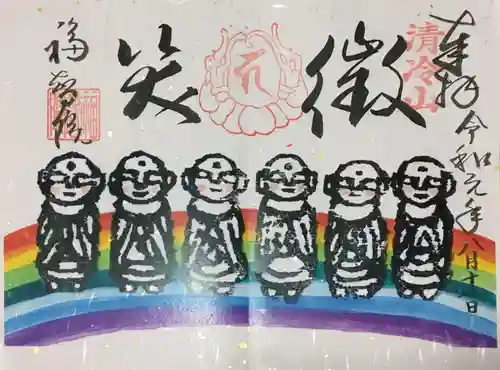 奉拝 令和元年八月十一日
清冷山
微笑
福智院